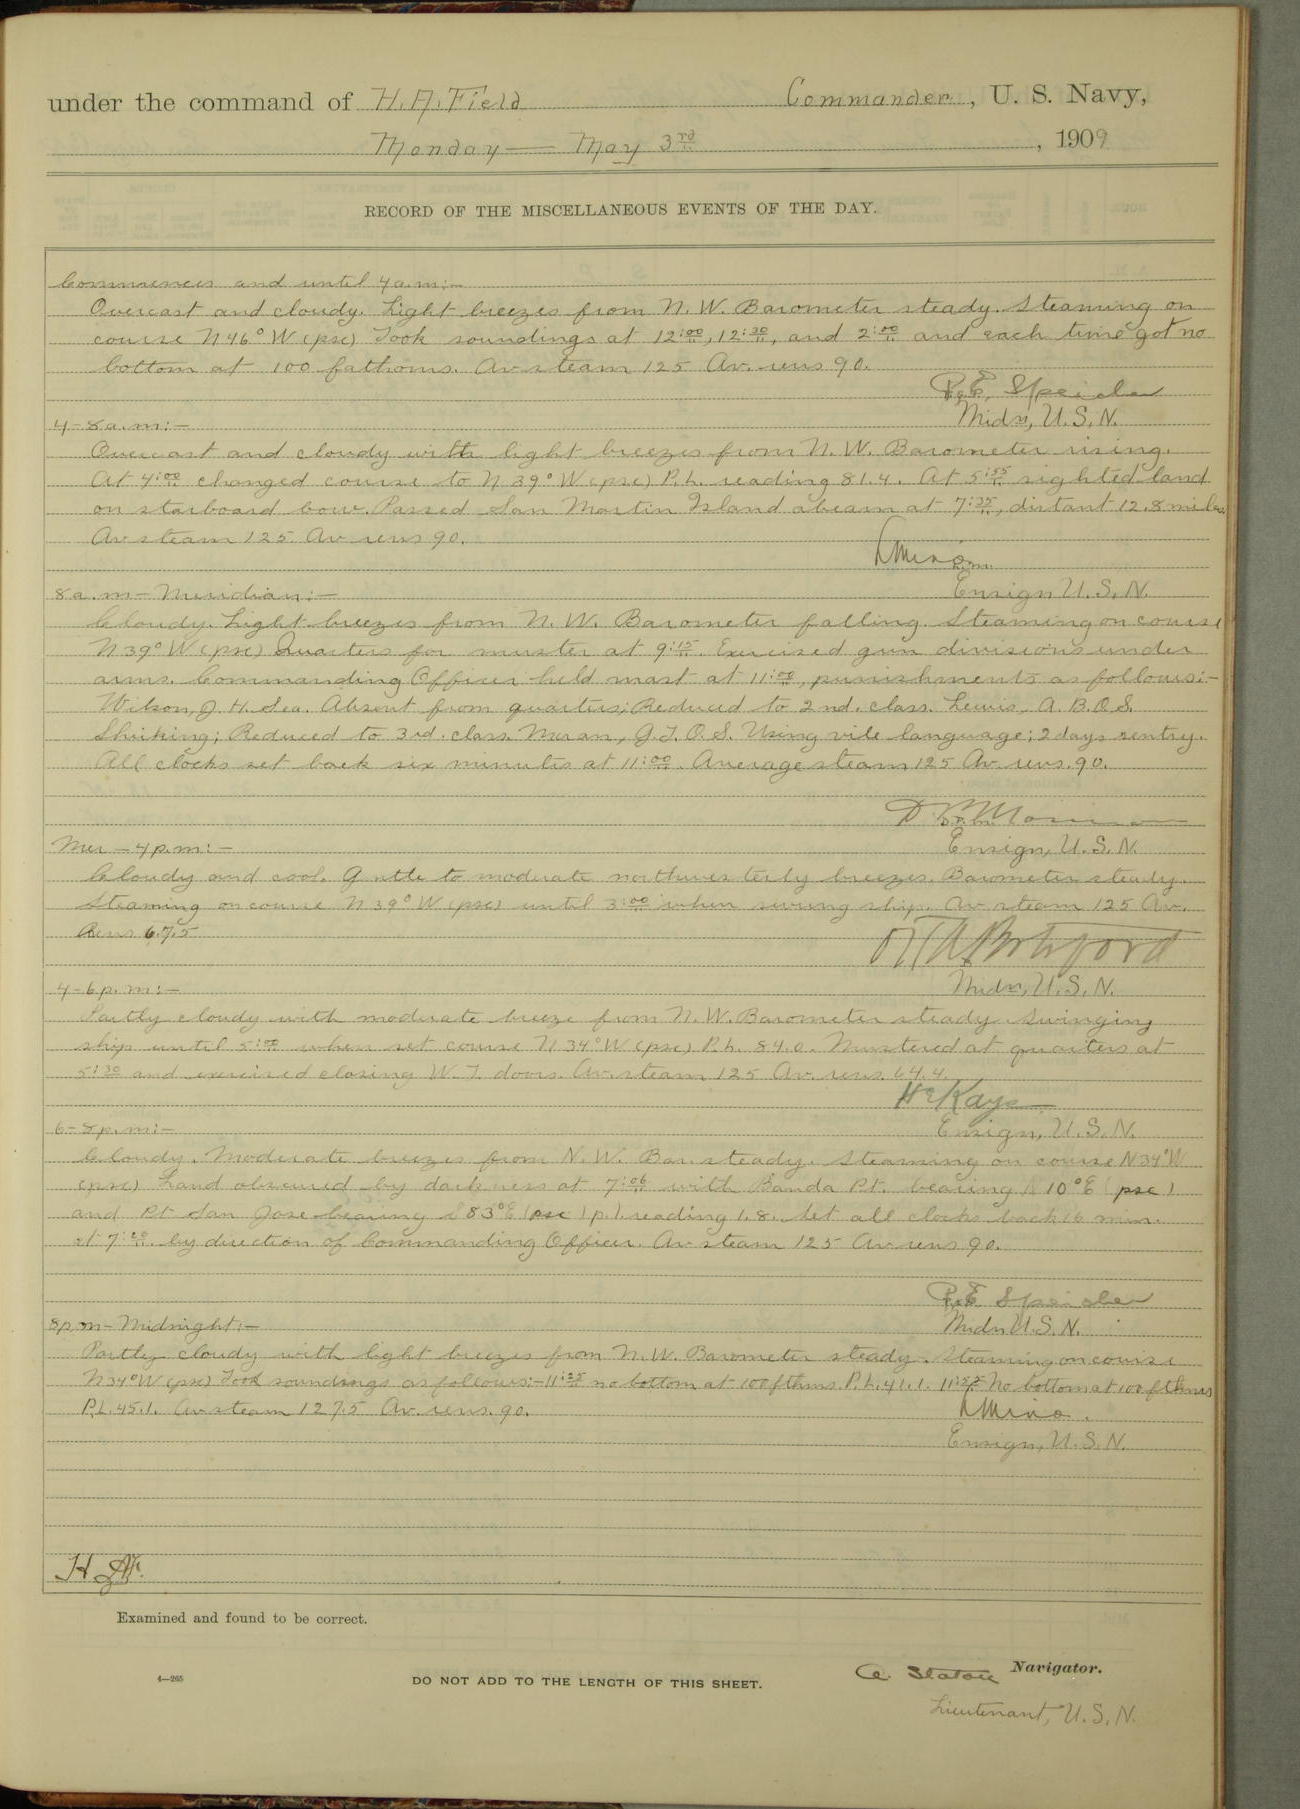 under the command of H. A. Field Commander, U. S. Navy,
Monday — May 3rd, 1909
RECORD OF THE MISCELLANEOUS EVENTS OF THE DAY.
Commences and until 4 a.m:-
Overcast and cloudy. Light breezes from N. W. Barometer steady. Steaming on
course N 46° W (psc) Took soundings at 12:00, 12:30, and 2:00 and each time got no
bottom at 100 fathoms. Av steam 125 Av. revs 90.
R. E. Speicher
Midn, U. S. N.
4-8 a.m:-
Overcast and cloudy with light breezes from N. W. Barometer rising.
At 4:00 changed course to N 39° W (psc) P. L. reading 81.4. At 5:55 sighted land
on starboard bow. Passed San Martin Island abeam at 7:35, distant 12.8 miles.
Av steam 125 Av revs 90.
Ensign U. S. N.
8 a.m - Meridian:-
Cloudy. Light breezes from N. W. Barometer falling. Steaming on course
N 39° W (psc) Quarters for muster at 9:15. Exercised gun divisions under
arms. Commanding Officer held mast at 11:00, punishments as follows:-
Wilson, J. H. Sea. Absent from quarters; Reduced to 2nd. class. Lewis, A. B. O. S.
Shirking; Reduced to 3rd. class. Moran, J. T. O. S. Using vile language; 2 days sentry.
All clocks set back six minutes at 11:00. Average steam 125 Av. revs. 90.
Ensign, U. S. N.
Mer - 4 p.m:-
Cloudy and cool. Gentle to moderate northwesterly breezes. Barometer steady.
Steaming on course N 39° W (psc) until 3:00 when swung ship. Av steam 125 Av.
Revs 67.5
Midn, U. S. N.
4-6 p. m:-
Partly cloudy with moderate breeze from N. W. Barometer steady. Swinging
ship until 5:00 when set course N 34° W (psc) P. L. 84.0. Mustered at quarters at
5:30 and exercised closing W. T. doors. Av. steam 125 Av. revs. 64.4.
Ensign, U. S. N.
6-8 p. m:-
Cloudy. Moderate breezes from N. W. Bar. steady. Steaming on course N 34° W
(psc) Land obscured by darkness at 7:06 with Banda Pt. bearing N 10° E (psc)
and Pt San Jose bearing S 83° E (psc) p. l. reading 1.8. Set all clocks back 16 min.
at 7:20 by direction of Commanding Officer. Av steam 125 Av revs 90.
R. E. Speicher
Midn U. S. N.
8 p.m - Midnight:-
Partly cloudy with light breezes from N. W. Barometer steady. Steaming on course
N 34° W (psc) Took soundings as follows:- 11:25 no bottom at 100 fthms. P. L. 41.1. 11:55 No bottom at 100 fthms
P. L. 45.1. Av steam 127.5 Av. revs. 90.
Ensign, U. S. N.
H. A. F.
Examined and found to be correct.
4—265
DO NOT ADD TO THE LENGTH OF THIS SHEET.
A. Staton Navigator.
Lieutenant, U. S. N.